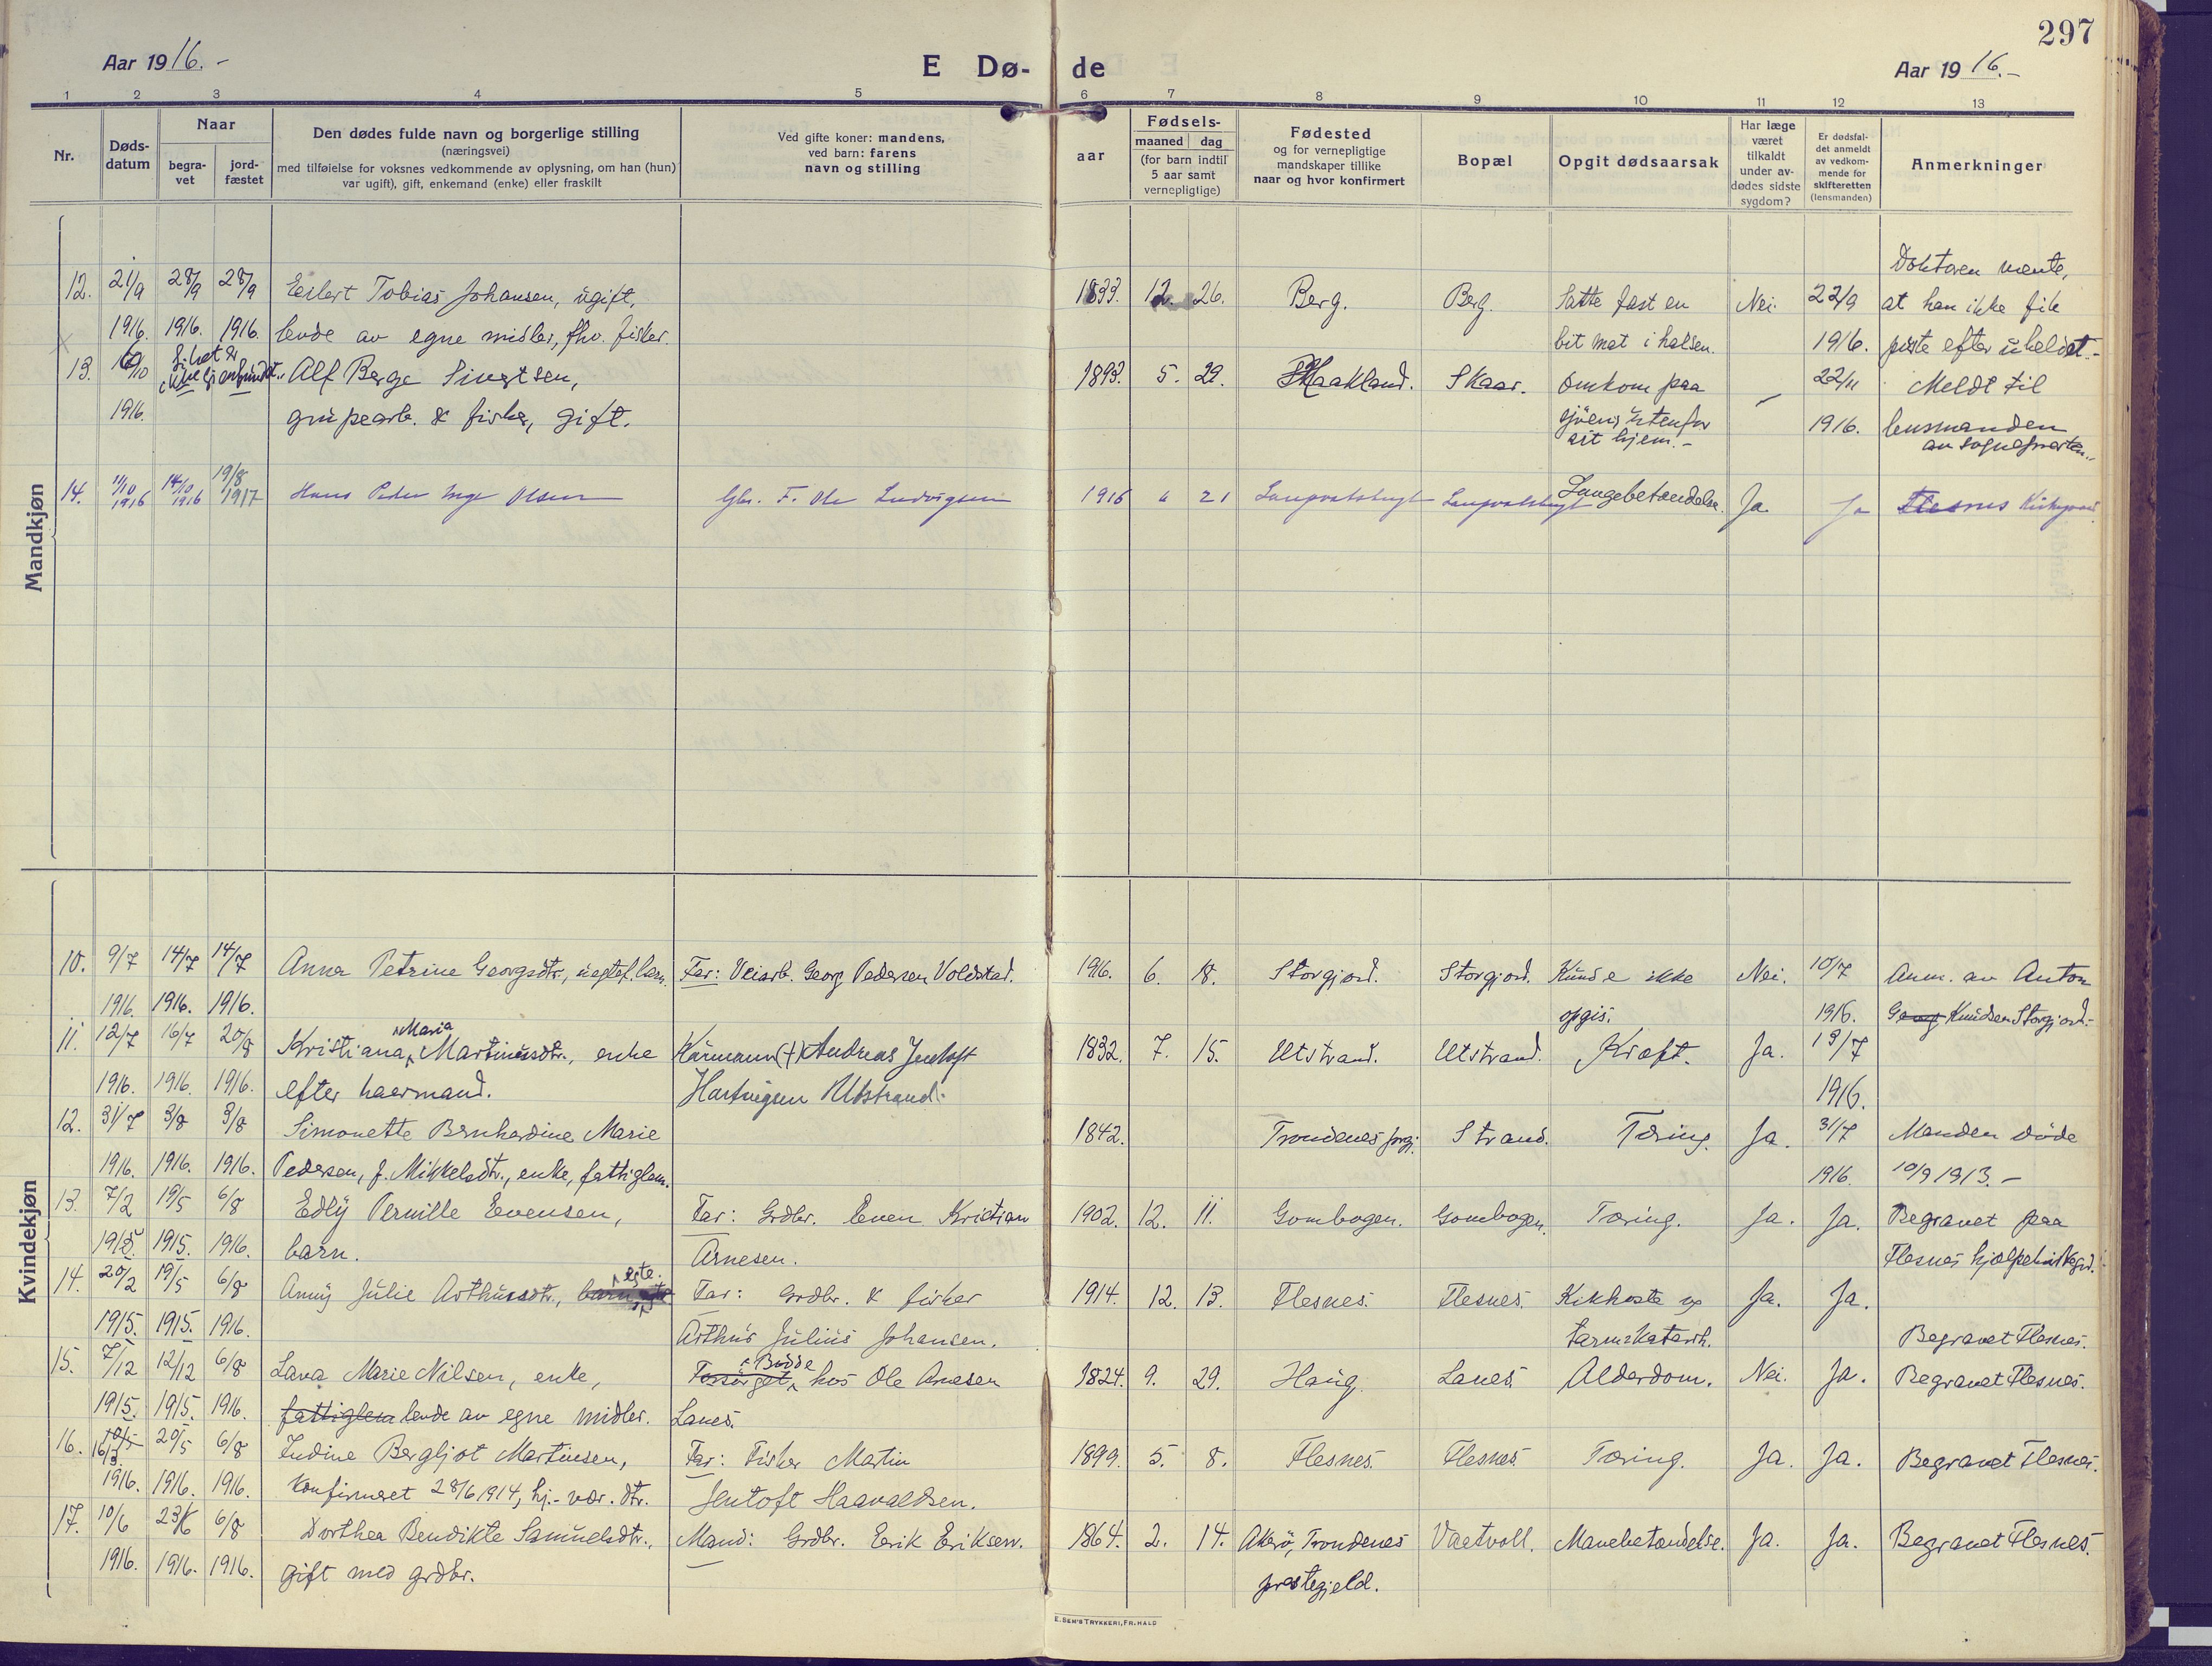 297
Aar 1916.-
E Dø-de
Aar 1916.-
1 2 3 4 5 6 7 8 9 10 11 12 13
Nr.
Døds-
datum
Naar
begra-
vet
jord-
fæstet
Den dødes fulde navn og borgerlige stilling
(næringsvei)
med tilføielse for voksnes vedkommende av oplysning, om han (hun)
var ugift), gift, enkemand (enke) eller fraskilt
Ved gifte koner: mandens,
ved barn: farens
navn og stilling
aar
Fødsels-
maaned dag
(for barn indtil
5 aar samt
vernepligtige)
Fødested
og for vernepligtige
mandskaper tillike
naar og hvor konfirmert
Bopæl
Opgit dødsaarsak
Har læge
været
tilkaldt
under av-
dødes sidste
sygdom?
Er dødsfal-
det anmeldt
av vedkom-
mende for
skifteretten
(lensmanden)
Anmerkninger
Mandkjøn
Doktoren mente,
12. 21/9 28/9 28/9 Eilert Tobias Johansen, ugift, 1833. 12. 26. Berg. Berg. Satte fast en Nei. 22/9 at han ikke fik
1916. 1916. 1916. levde av egne midler, fhv. fisker. bit mat i halsen. 1916. puste efter uheldet.-
13. /10 Liket er ikke gjenfundet. Alf Berge Sivertsen, 1893. 5. 29. Haakland. Skaar. Omkom paa - 22/11 Meldt til
1916. grupearb. & fisker, gift. sjöen utenfor 1916. lensmanden
sit hjem.- av sognepresten.
14. 11/10 1916 14/10 1916 19/8 1917 Hans Peder Inge Olsen Gbr. F. Ole Ludvigsen 1916 6 21 Langvatsbugt Langvatsbugt Lungebetændelse. Ja. Ja Flesnes Kirkegaard.
Kvindekjøn
10. 9/7 14/7 14/7 Anna Petrine Georgsdtr., uegtef. barn. Far: Veiarb. Georg Pedersen Voldstad. 1916. 6. 18. Storjord. Storjord. Kunde ikke Nei. 10/7 Anm. av Anton
1916. 1916. 1916. opgis. 1916. Georg Knudsen Storjord.-
11. 12/7 16/7 20/8 Kristiana Maria Martinusdtr., enke Kårmann (+) Andreas Jentoft 1832. 7. 15. Utstrand. Utstrand. Kræft. Ja. 13/7
1916. 1916. 1916. efter kaarmand. Hartvigsen Utstrand. 1916.
12. 31/7 3/8 3/8 Simonette Bernhardine Marie 1842. Trondenes prgj. Strand. Tæring. Ja. 31/7 Manden döde
1916. 1916. 1916. Pedersen, f. Mikkelsdtr., enke, fattiglem. 1916. 10/9 1913.-
13. 7/2 19/5 6/8 Edly Pernille Evensen, Far: Grdbr. Even Kristian 1902. 12. 11. Gombogen. Gombogen. Tæring. Ja. Ja. Begravet paa
1915. 1915. 1916. barn. Arnesen. Flesnes hjælpekirkegrd.
14. 20/2 19/5 6/8 Anny Julie Arthursdtr., barn, egte. Far: Grdbr. & fisker 1914. 12. 13. Flesnes. Flesnes. Kikhoste og Ja. Ja.
1915. 1915. 1916. Arthur Julius Johansen. tarmkatarrh. Begravet Flesnes.
15. 7/12 12/12 6/8 Lava Marie Nilsen, enke, Forsörget Bodde hos Ole Arnesen 1824. 9. 29. Haug. Lanes. Alderdom. Nei. Ja. Begravet Flesnes.
1915. 1915. 1916. fattiglem levde av egne midler. Lanes.
16. 16/3 20/5 6/8 Indine Bergljot Martinsen, Far: Fisker Martin 1899. 5. 8. Flesnes. Flesnes. Tæring. Ja. Ja. Begravet Flesnes.
1916. 1916. 1916. konfirmeret 28/6 1914, hj.-vær. dtr. Jentoft Haavaldsen.
17. 10/6 23/6 6/8 Dorthea Bendikte Samuelsdtr., Mand: Grdbr. Eerik Eriksen. 1864. 2. 14. Akerö, Trondenes Vaetvoll. Mavebetændelse. Ja. Ja. Begravet Flesnes.
1916. 1916. 1916. gift med grdbr. prestegjeld.
E. SEM'S TRYKKERI, FR. HALD